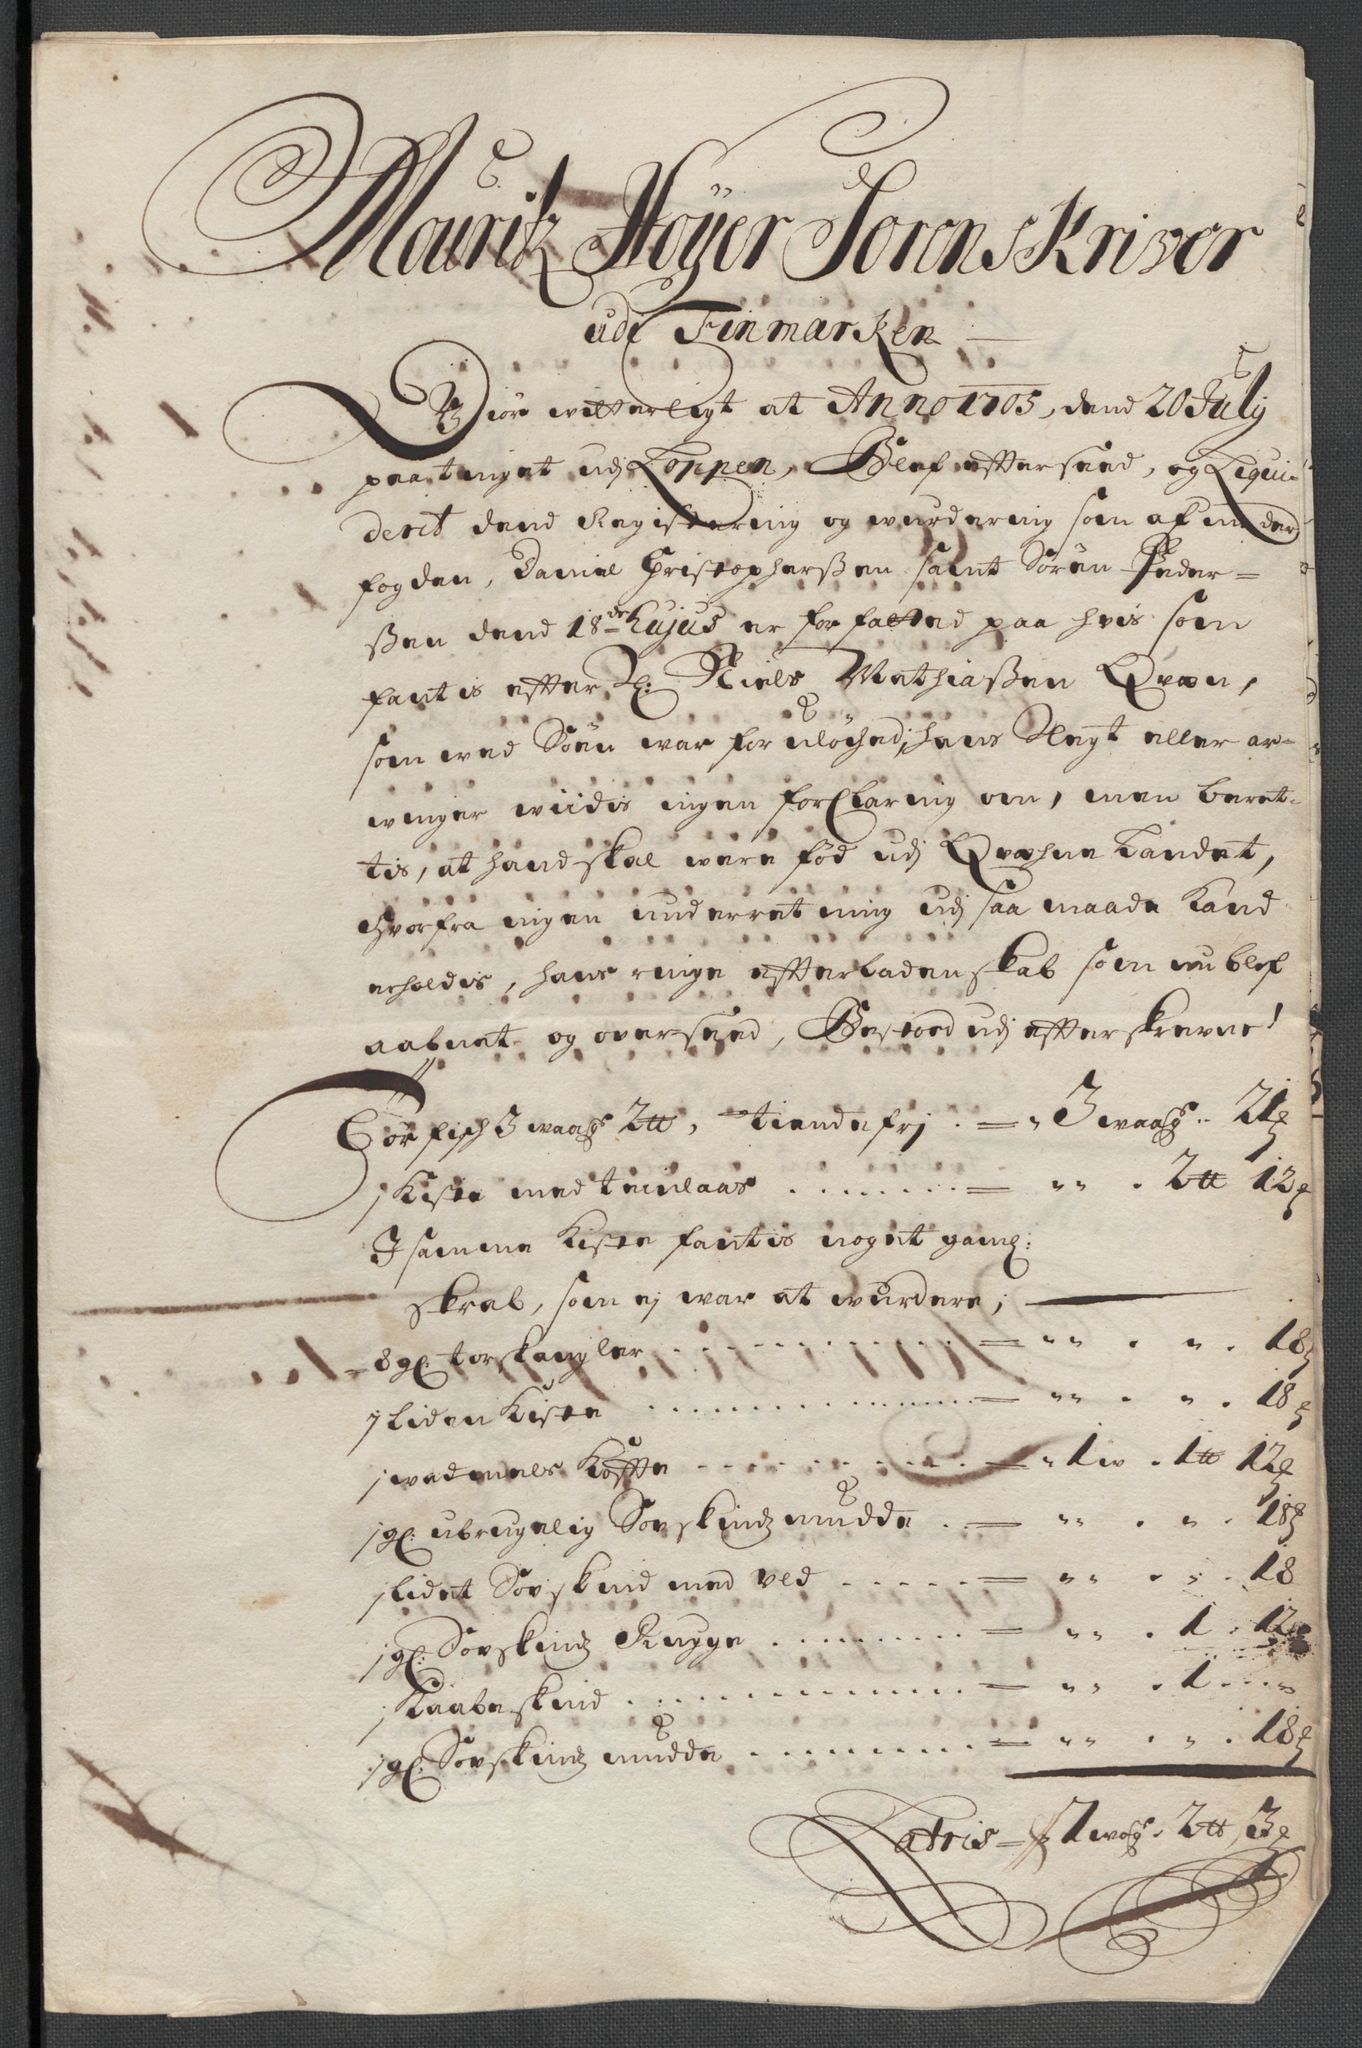 Mouritz Höyer Sorenskriver
udi Finmarken
Giör witterligt at Anno 1705, dend 20 July
paa tinget udj Loppen, Blef effterseed, og Liqui-
derit dend Registering og wurdering som af under
fogden, Daniel Christophersßen samt Sören Peder=
ßen dend 18de Hujus er forfatted paa hvis som
fantis effter Sl: Niels Mathiaßen Qvæn,
som wed Söen war forulöched, hans Slegt eller ar-
winger wiidis ingen forClaring om, men beret-
tis, at hand skal were fød udj Qvæhne Landet,
hvorfra ingen underretning udj saa maade kand
erholdis, hans ringe effterladenskab som nu blef
aabnet og overseed, Bestoed udj effterskrevne!
Tör fisch 3 waag 2 tt, tiende frj . = " 3 waag .. 2 tt
j Kiste med teinlaas . . . . . = " " . 2 tt 12
J samme Kiste fantis noget gaml:
skrab, som ej war at wurdere;
8 gl: torskangler . . . . . = " " . " . 18
j liden Kiste . . . . . = " " . " . 18
j wadmels Kofte . . . . . = " 1 w . 1 tt 12
j gl: ubrugelig Sovskindz mudde . = " " . " . 18
j lidet Sovskind med uld . . . . = " " . " . 18
j gl: Sovskindz Rugge . . . . . = " " . 1 . 12
j Kaabeskind . . . . . = " " . 1 . . . "
j gl: Sovskindz mudde . . . . . = " " . " . 18
Latris = 7 wog . 2 tt 3